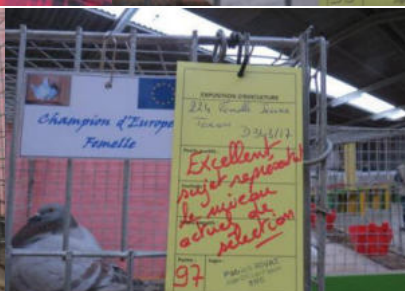 Champion d'Europe
Femelle
EXPOSITION D'AVICULTURE
224 Femelle Jeune
Texan
D 346/17
Excellent
sujet représentatif
le niveau
actuel de
sélection
97